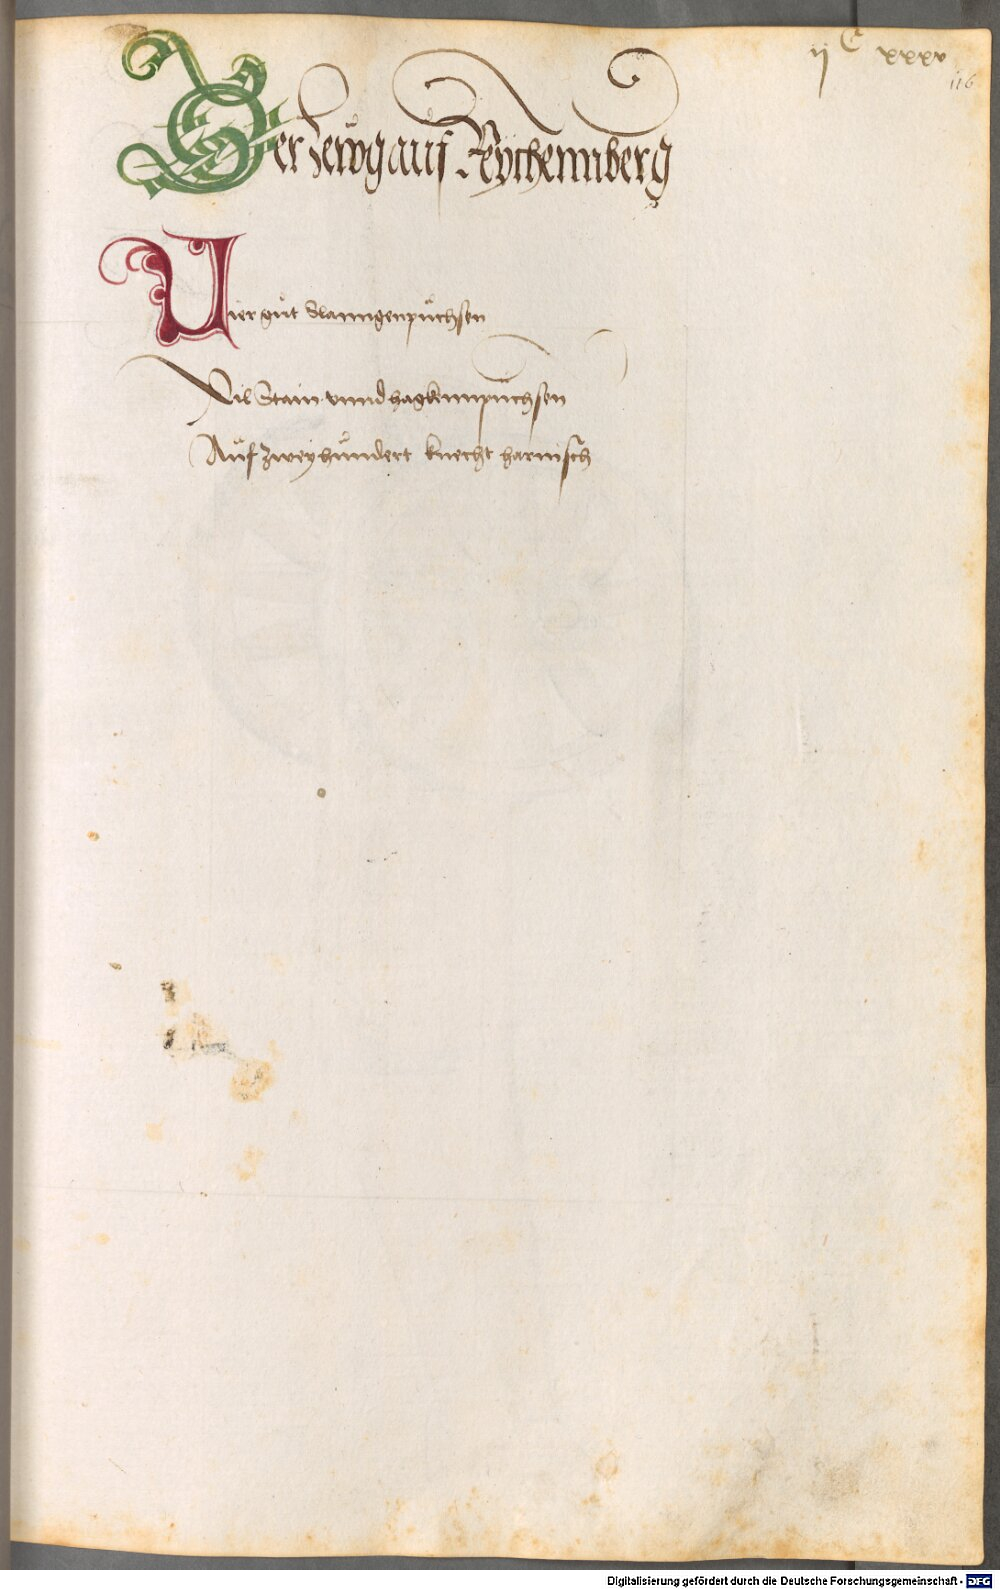 ij C xxxv
116
Der Zewg auf Reychennberg
Vier gůt Slanngenpůchsen
Vil Stain vnnd hagkennpuchsen
Auf zweyhůndert knecht harnisch
Digitalisierung gefördert durch die Deutsche Forschungsgemeinschaft - DFG